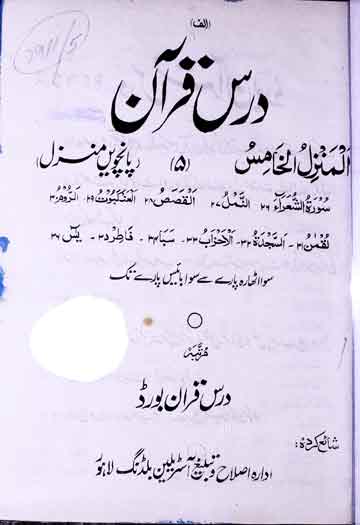 (الف)
درس قرآن
اَلمَنزِلُ الخَامِسُ (۵) (پانچویں منزل)
سُورَۃُ الشُّعَرَآء ۲۶ اَلنَّمْل ۲۷ اَلْقَصَص ۲۸ اَلْعَنْکَبُوْت ۲۹ اَلرُّوْم ۳۰
لُقْمٰن ۳۱۔ اَلسَّجْدَۃ ۳۲۔ اَلْاَحْزَاب ۳۳۔ سَبَا ۳۴۔ فَاطِر ۳۵۔ یٰسٓ ۳۶
سوا اٹھارہ پارے سے سوا بائیس پارے تک
مُرتّبہ
درس قرآن بورڈ
شائع کردہ:
ادارہ اصلاح و تبلیغ آسٹریلین بلڈنگ لاہور